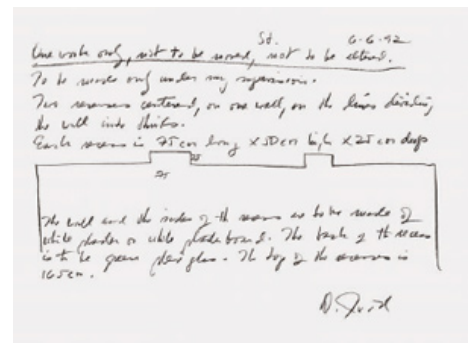 St. 6-6-92
One work only, not to be moved, not to be altered.
To be made only under my supervision.
Two recesses centered, on one wall, on the lines dividing
the wall into thirds.
Each recess is 75 cm long x 50 cm high x 25 cm deep
25
75
The wall and the inside of the recess are to be made of
white plaster or white plasterboard. The back of the recess
is to be green plexiglass. The top of the recesses is
165 cm.
D. Judd